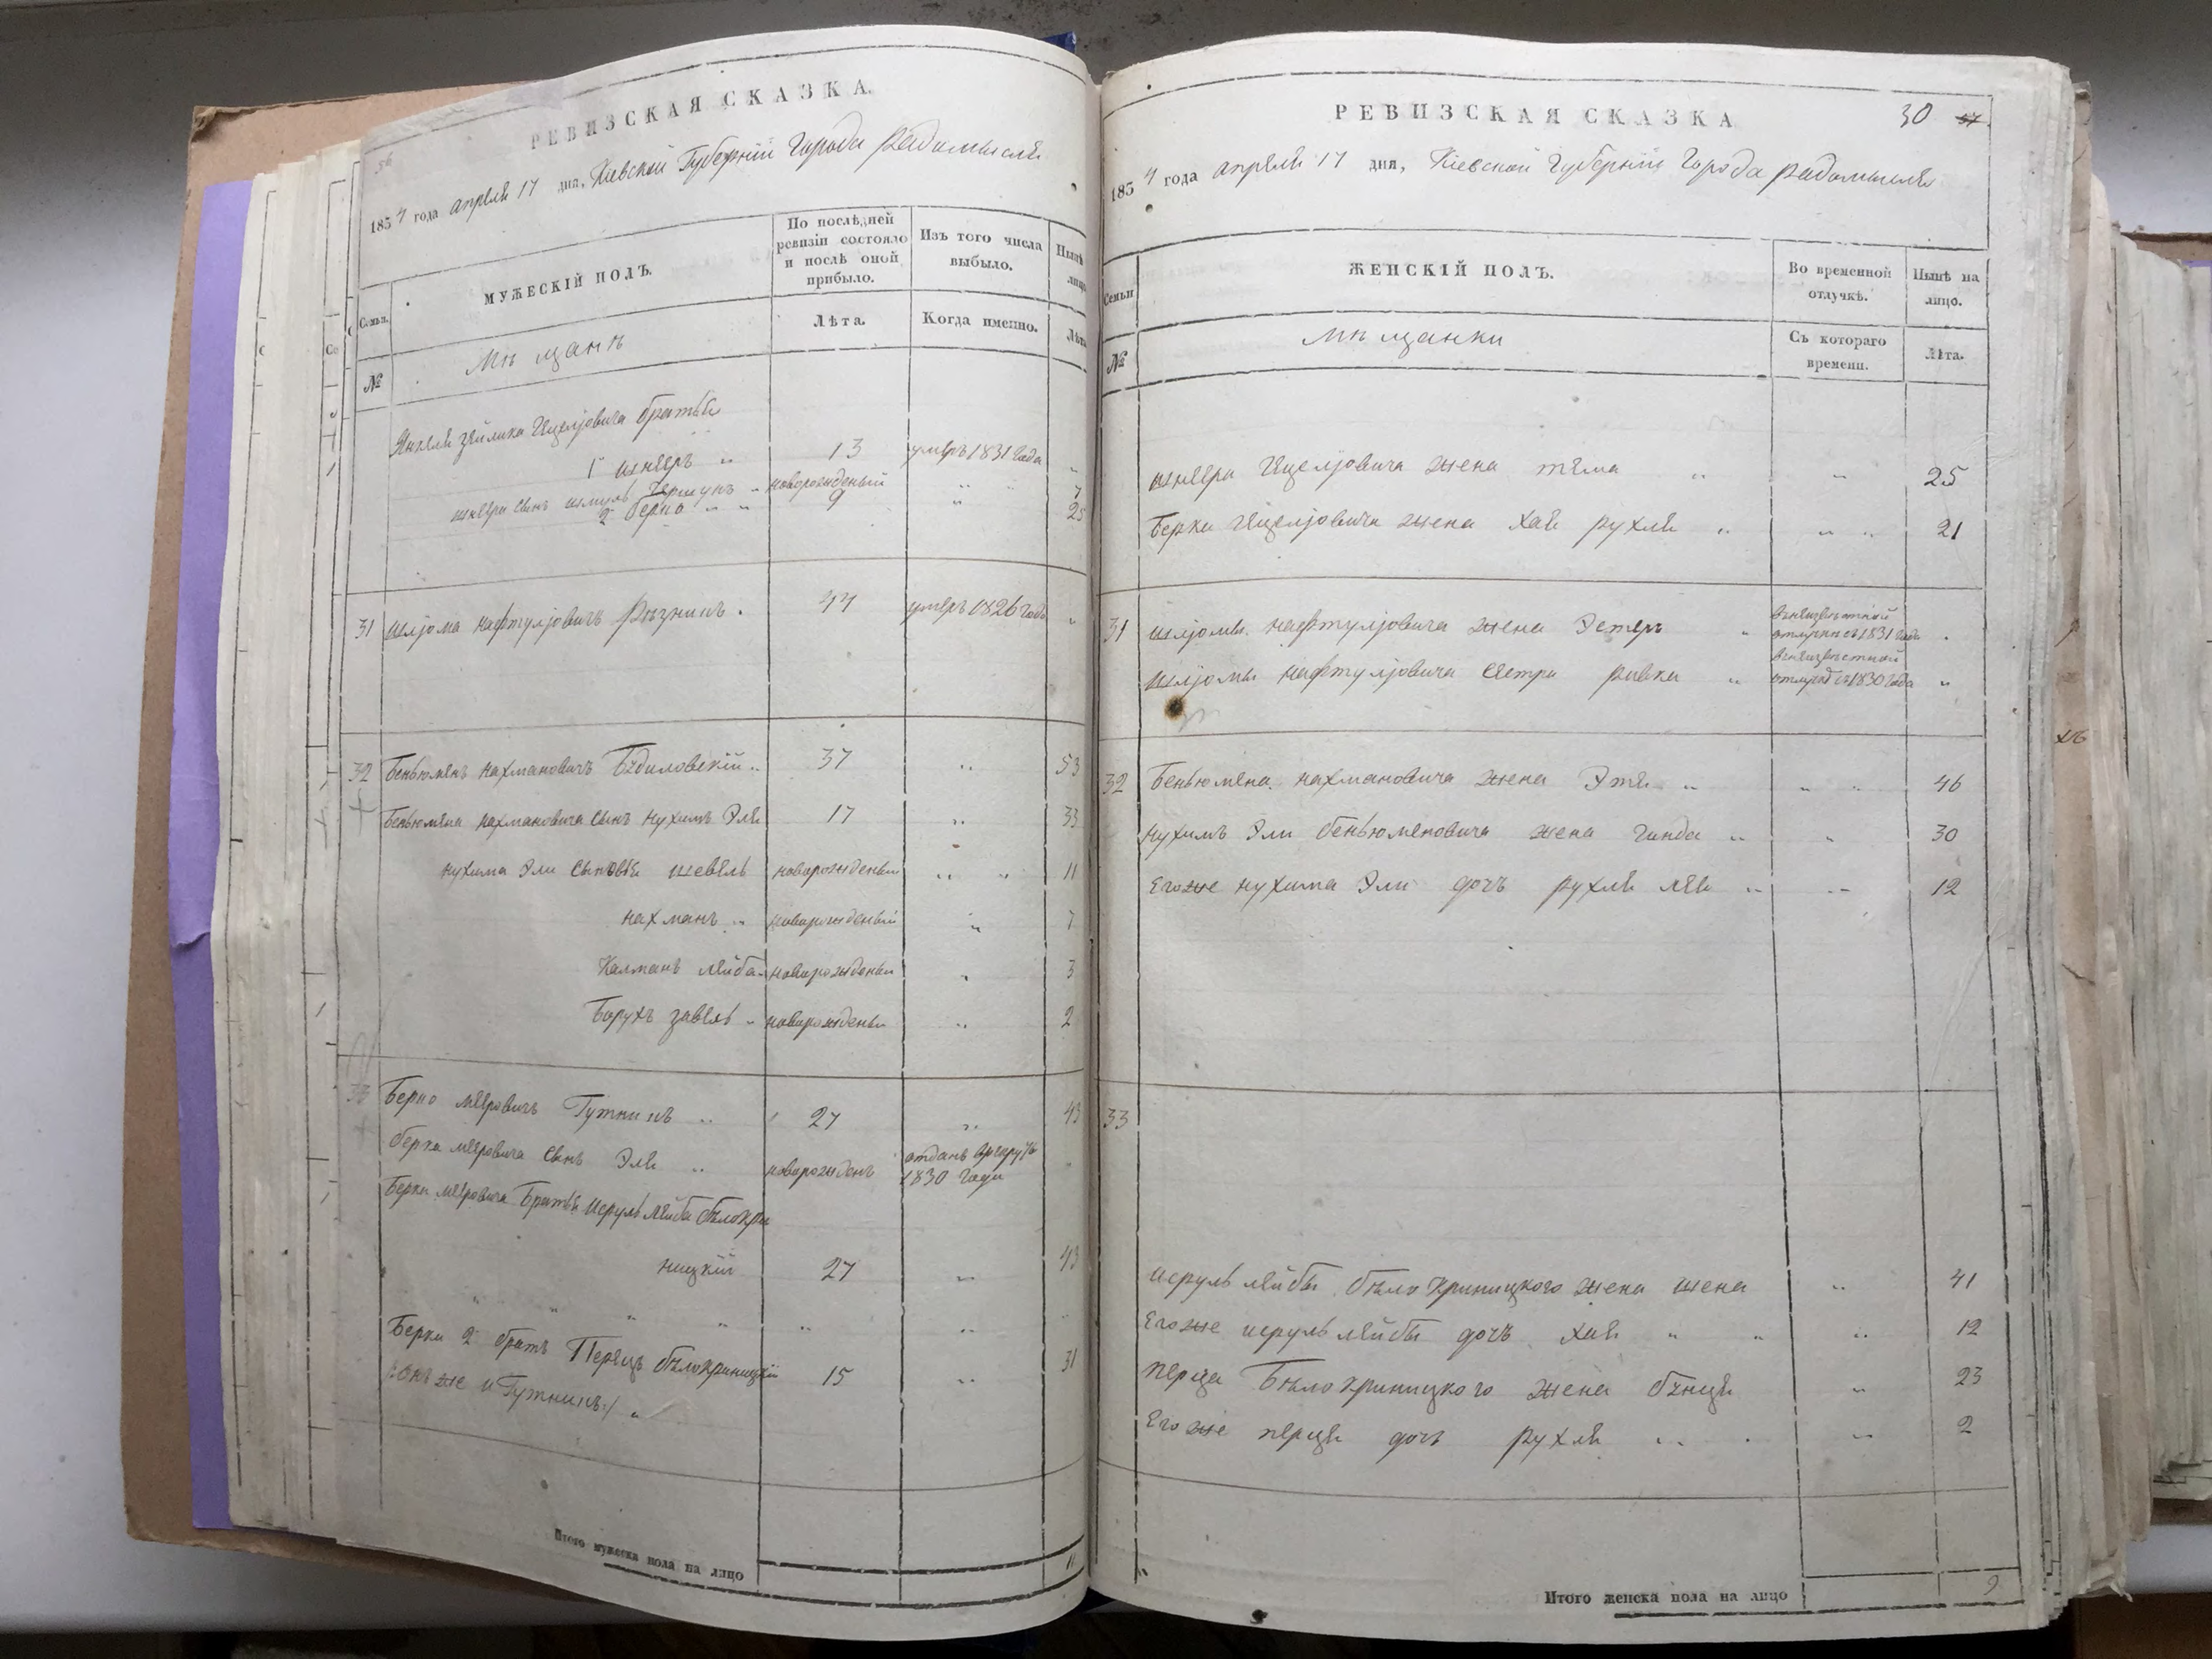 56
РЕВИЗСКАЯ СКАЗКА.
1854 года апреля 17 дня, Кіевской Губерніи города Радомысля
Семьи.
МУЖЕСКІЙ ПОЛЪ.
По послѣдней ревизіи состояло и послѣ оной прибыло.
Изъ того числа выбыло.
Нынѣ лицо
№
Мѣщанъ
Лѣта.
Когда именно.
Лѣта
Янкеля Зейлика Ицковича братья
1й Шнеръ 13 умеръ 1831 года
Шнера сынъ Шмуль Гершунъ новорожденый 7
2й Берко 9 25
31 Шлјома Нафтулјовичъ 44 умеръ 1826 года
32 Беньюменъ Нахмановичъ Бѣдиловскій 37 53
Беньюмена Нахмановича сынъ Нухимъ Эля 17 33
Нухима Эли сыновья Шевель новорожденый 11
Нахманъ новорожденый 7
Калманъ Лейба новорожденый 3
Борухъ Завель новорожденый 2
33 Берко Мееровичъ Гуткинъ 27 43
Берка Меровича сынъ Эля новорожденъ отданъ в рекруты 1830 года
Берки Меровича братья Исруль Лейба Бѣлокри
ницкій 27 43
Берки 2й братъ Перецъ Бѣлокриницкій 15 31
/:Онъ же и Гуткинъ:/
Итого мужеска пола на лицо 11
РЕВИЗСКАЯ СКАЗКА
30
1854 года апреля 17 дня, Кіевской Губерніи города Радомысля
Семьи
ЖЕНСКІЙ ПОЛЪ.
Во временной отлучкѣ.
Нынѣ на лицо.
№
Мѣщанки
Съ котораго времени.
Лѣта.
Шнера жена Тема 25
Берки жена Хая Рухля 21
31 Шлјомы Нафтулјовича жена Эстеръ в неизвѣстной отлучке съ 1831 года
Шлјомы Нафтулјовича сестра Ривка в неизвѣстной отлучке съ 1830 года
32 Беньюмена Нахмановича жена Этя 46
Нухимъ Эли Беньюменовича жена Гинда 30
Егоже Нухима Эли дочъ Рухля Лея 12
33
Исруль Лейбы Бѣлокриницкого жена Шена 41
Егоже Исруль Лейбы дочъ Хая 12
Перца Бѣлокриницкого жена Бѣнця 23
Егоже Перца дочъ Рухля 2
Итого женска пола на лицо 9